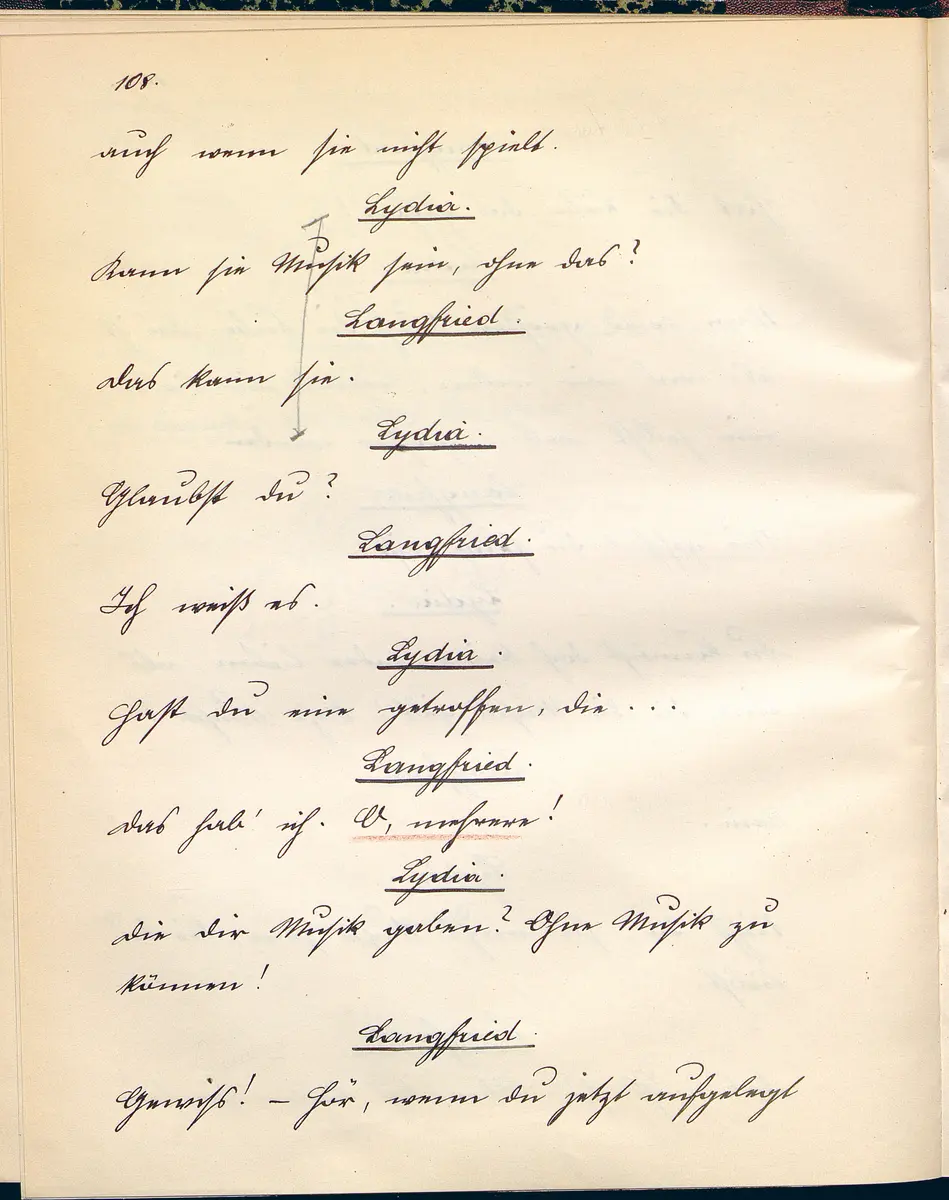 108.
auch wenn sie nicht spielt.
Lydia.
Kann sie Musik sein, ohne das?
Langfried.
Das kann sie.
Lydia.
Glaubst du?
Langfried.
Ich weiß es.
Lydia.
Hast du eine getroffen, die ...
Langfried.
Das hab' ich. O, mehrere!
Lydia.
Die dir Musik gaben? Ohne Musik zu
können!
Langfried.
Gewiss! – Hör, wenn du jetzt aufgelegt